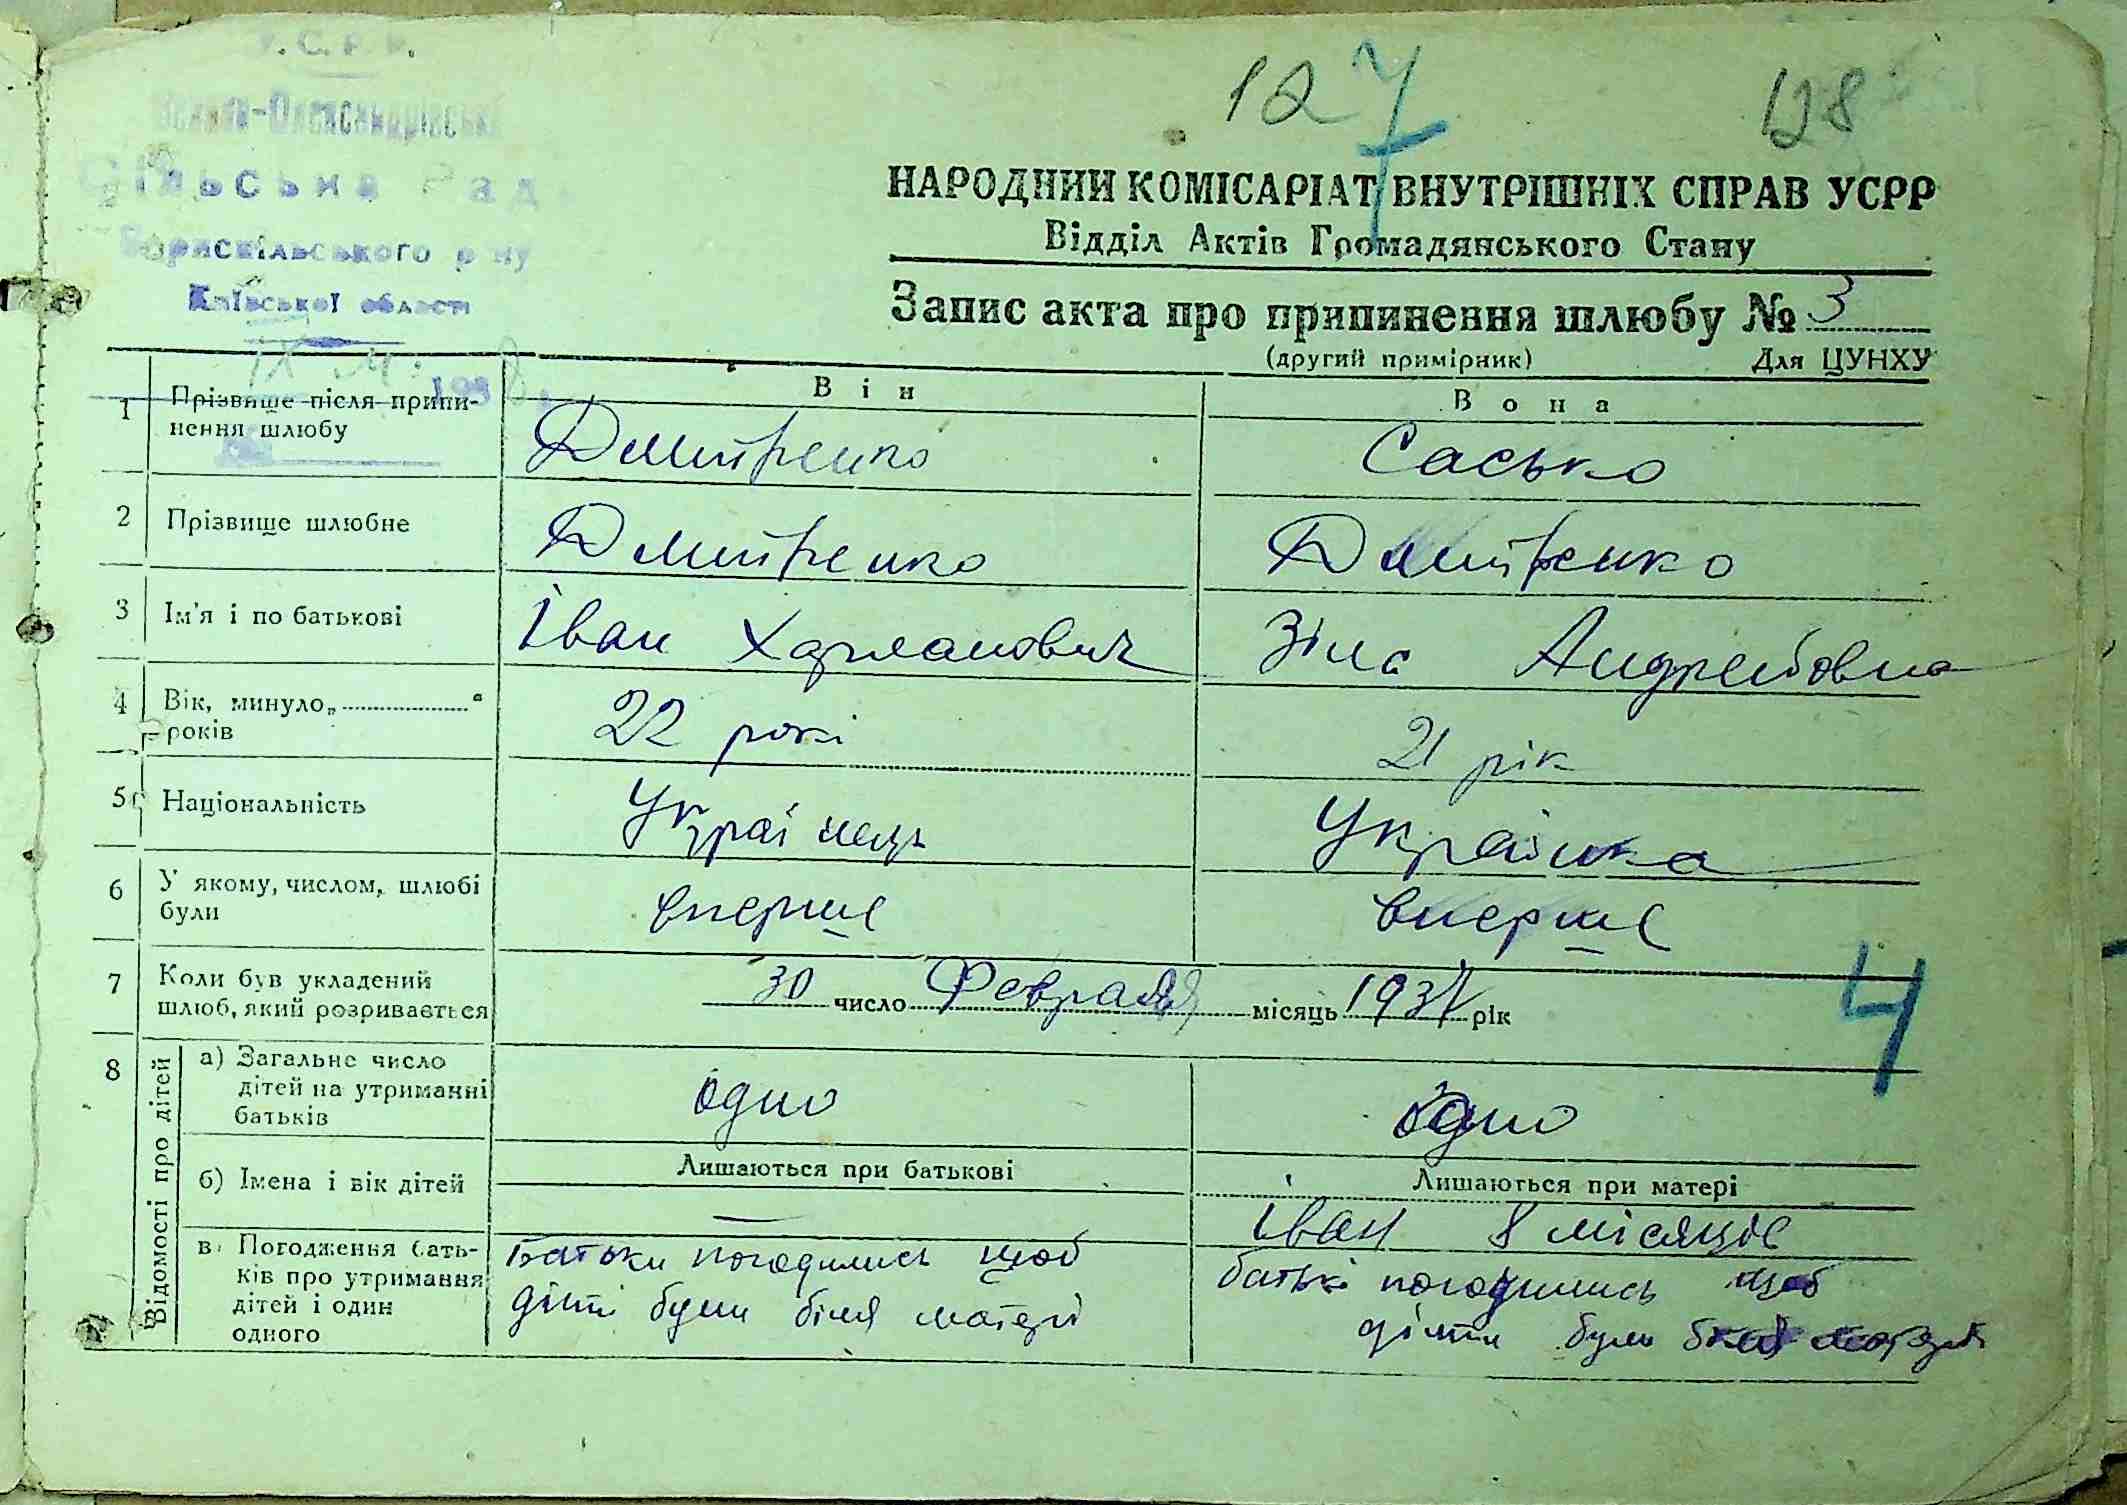 У.С.Р.Р.
Велико-Олександрівська
Сільська Рада
Бориспільського р ну
Київської області
IX м. 1938
127 128
НАРОДНИЙ КОМІСАРІАТ ВНУТРІШНІХ СПРАВ УСРР
Відділ Актів Громадянського Стану
Запис акта про припинення шлюбу № 3
(другий примірник) Для ЦУНХУ
Він Вона
1 Прізвище після припи-
нення шлюбу Дмитренко Сасько
2 Прізвище шлюбне Дмитренко Дмитренко
3 Ім'я і по батькові Іван Харланович Зіна Андреївна
4 Вік, минуло „ “
років 22 рокі 21 рік
5 Національність Українець Українка
6 У якому, числом, шлюбі
були вперше вперше
7 Коли був укладений
шлюб, який розривається 30 число Февраля місяць 1937 рік
4
8 Відомості про дітей
а) Загальне число
дітей на утриманні
батьків одно одно
б) Імена і вік дітей Лишаються при батькові Лишаються при матері
— Іван 8 місяців
в) Погодження бать-
ків про утримання
дітей і один
одного
Батьки погодились щоб
діти були біля матері
батькі погодились щоб
діти були біля